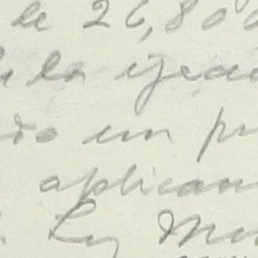 de 26,800
la ejecu
do un pr
aplican
Ley Mun